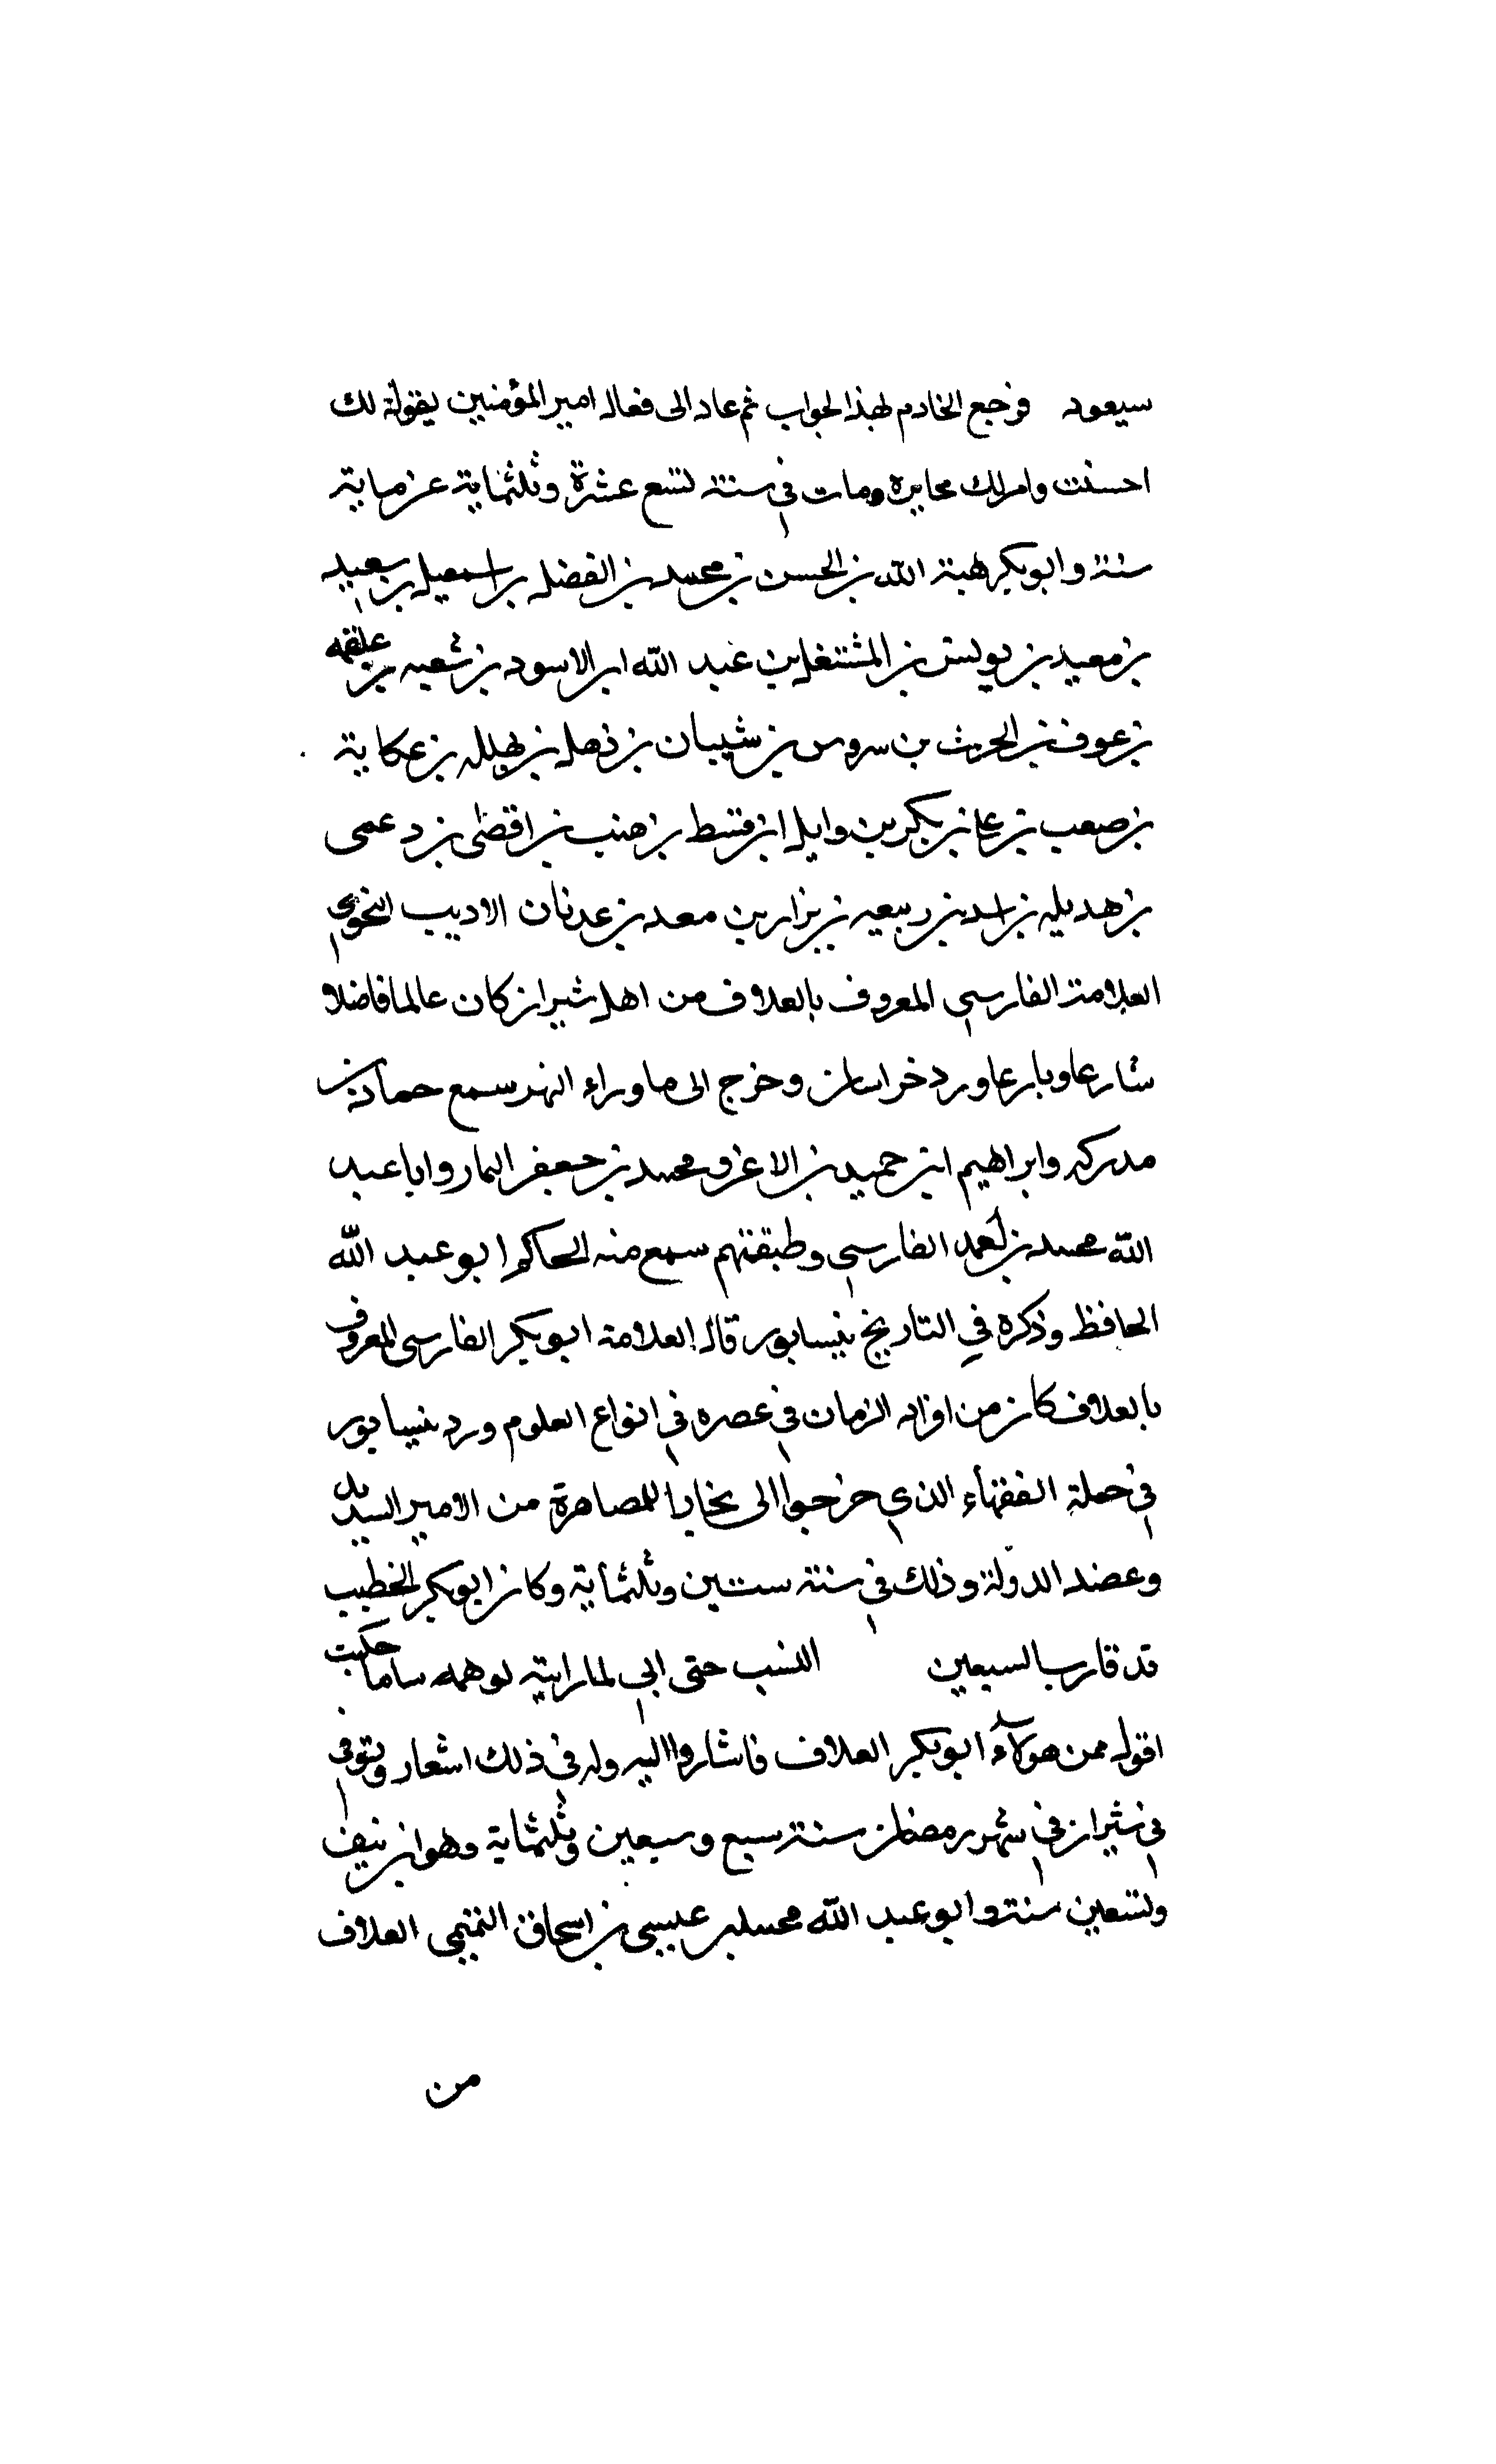 سيعود فرجع الخادم بهذا الجواب ثم عاد الى فقال امير المؤمنين يقول لك
احسنت وامر لك بجايزة ومات في سنة تسع عشرة وثلثماية عن ماية
سنة وابو بكر هبة الله بن الحسن بن محمد بن الفضل بن اسمعيل بن سعيد
بن معبد بن يونس بن المشتغل بن عبد الله ابن الاسود بن شعبه بن علقمه
بن عوف بن الحرث بن سدوس بن شيبان بن ذهل بن بهلل بن عكاية
بن صعب بن علي بن بكر بن وايل ابن قسط بن هنب بن اقضى بن دعمى
بن هديله بن اسد بن ربيعه بن نزار بن معد بن عدنان الاديب النحوي
العلامة الفارسي المعروف بالعلاف من اهل شيراز كان عالما فاضلا
شارعا وبارعا ورد خراسان وخرج الى ما وراء النهر سمع حماد بن
مدرك وابراهيم ابن حميد بن الاغر ومحمد بن جعفر التمار وابا عبد
الله محمد بن احمد الفارسي وطبقتهم سمع منه الحاكم ابو عبد الله
الحافظ وذكره في التاريخ بنيسابور قال العلامة ابو بكر الفارسي المعروف
بالعلاف كان من افراد الزمان في عصره في انواع العلوم ورد نيسابور
في جملة الفقهاء الذي خرجوا الى بخارا للمصاهرة من الامير السديد
وعضد الدولة وذلك في سنة ستين وثلثماية وكان ابو بكر الخطيب
قد قارب السبعين النسب حتى اني لما رايته حكيت
اقول ممن هولآء ابو بكر العلاف فاشاروا اليه وله في ذلك اشعار وتوفي
في شيراز في شهر رمضان سنة سبع وسبعين وثلثماية وهو ابن نيف
وتسعين سنة وابو عبد الله محمد بن عيسى بن اسحاق التميمي العلاف
من